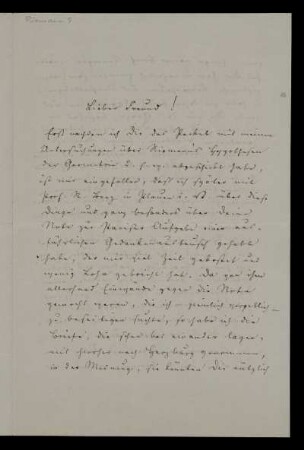 Riemann ?
Lieber Freund !
Erst nachdem ich dir das Packet mit meinen
Untersuchungen über Riemanns Hypothesen
der Geometrie abgeschickt habe,
ist mir eingefallen, daß ich später mit
Prof. in Plauen i. V. über diese
Dinge und ganz besonders über Deine
Note zur Pariser Ausgabe einen aus-
führlichen Gedankenaustausch gehabt
habe, der mir viel Zeit gekostet und
wenig Lohn gebracht hat. Da gar
allerhand Einwände gegen die Note
gemacht waren, die ich – ziemlich vergeblich –
zu beseitigen suchte, so habe ich die
Briefe, die schon bei einander lagen,
mit hierher nach Harzburg genommen,
in der Meinung, sie könnten Dir nützlich